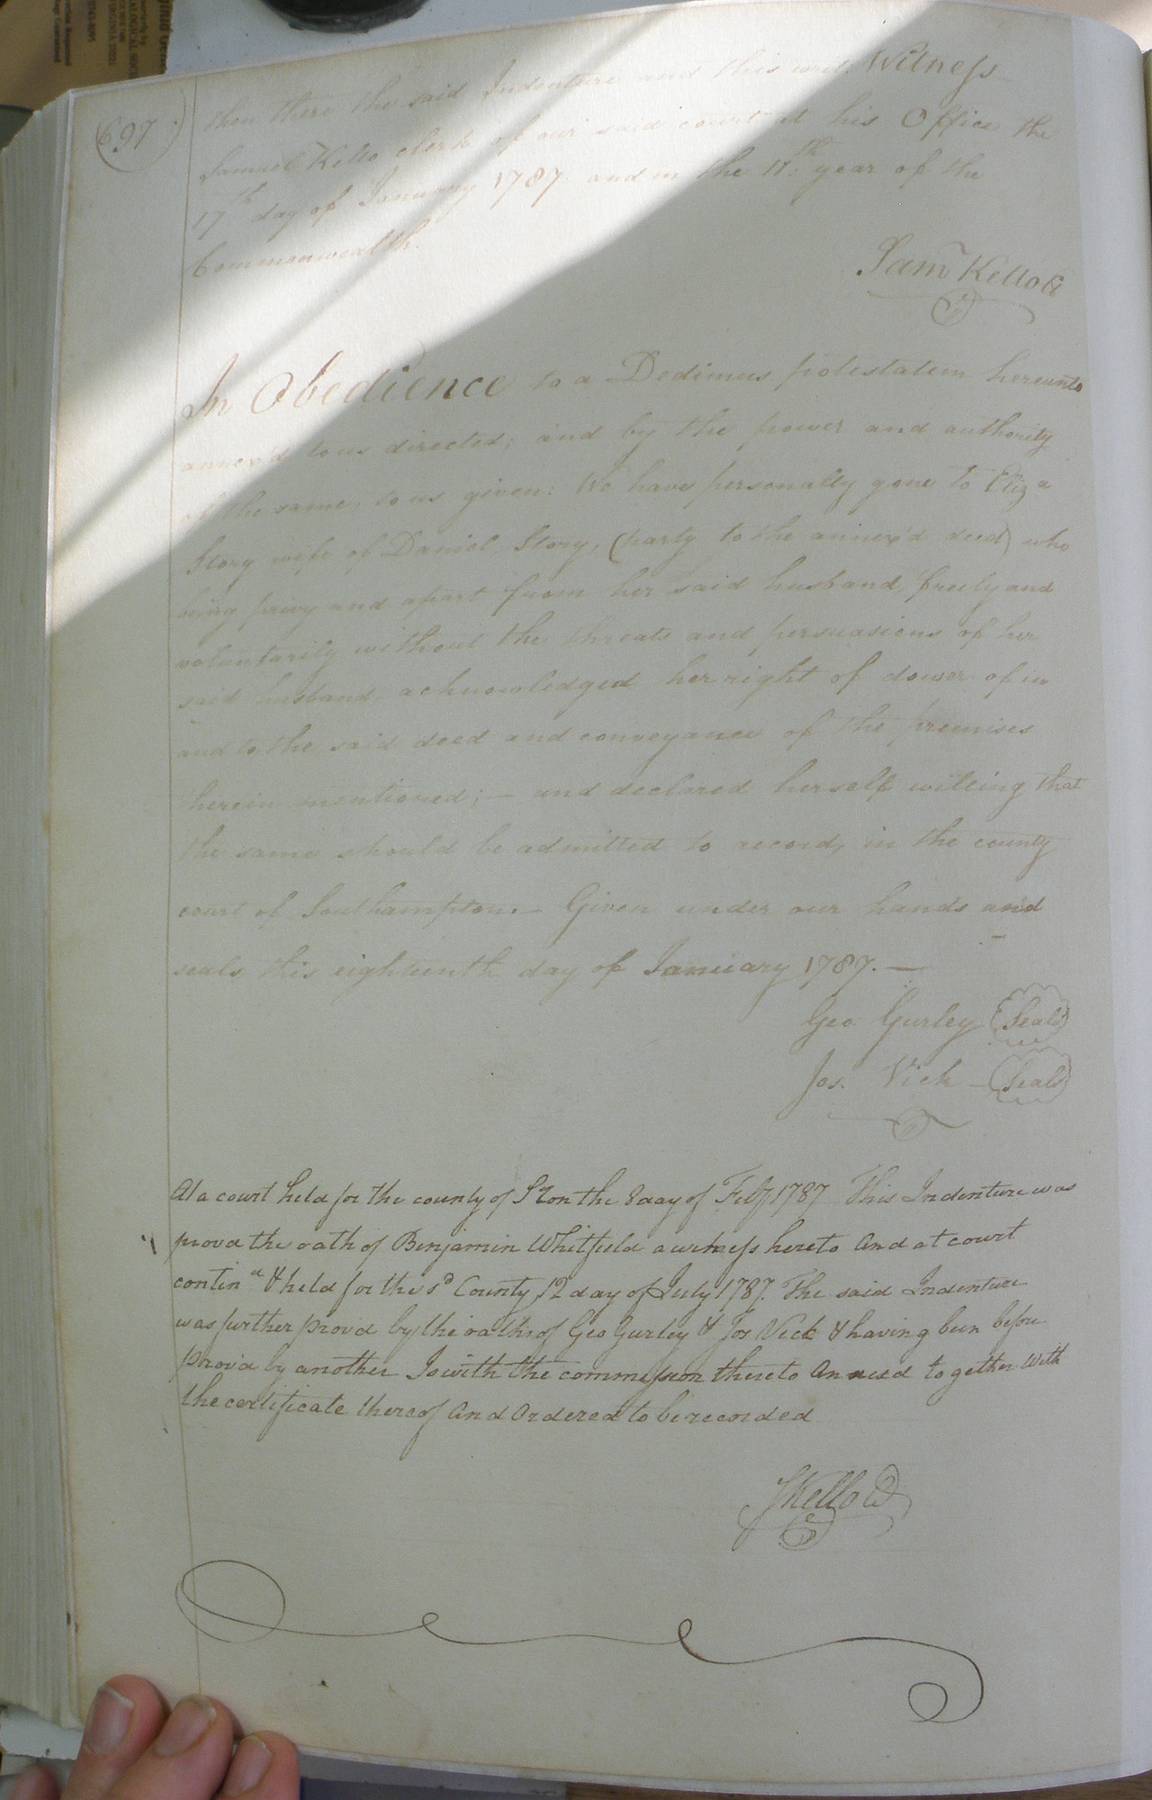 (697)
then there the said Indenture and this writ. Witness
Samuel Kello clerk of our said court at his Office the
17th day of January 1787 and in the 11th year of the
Commonwealth.
Sam Kello Cl
In Obedience to a Dedimus potestatem hereunto
annex'd to us directed; and by the power and authority
of the same, to us given: We have personally gone to Eliza
Story wife of Daniel Story, (party to the annex'd deed) who
being privy and apart from her said husband, freely and
voluntarily without the threats and persuasions of her
said husband, acknowledged her right of dower of in
and to the said deed and conveyance of the premises
herein mentioned; — and declared herself willing that
the same should be admitted to record, in the county
court of Southampton. — Given under our hands and
seals this eighteenth day of January 1787. —
Geo Gurley (Seal)
Jos. Vick — (Seal)
At a court held for the county of S ton the 8 day of Feby 1787 This Indenture was
provd the oath of Benjamin Whitfield a witness hereto And at court
contind & held for the sd County 12 day of July 1787. The said Indenture
was further provd by the oaths of Geo Gurley & Jos Vick & having been before
prov'd by another Is with the commission thereto Annexed together with
the certificate thereof And Ordered to be recorded
S Kello Cl